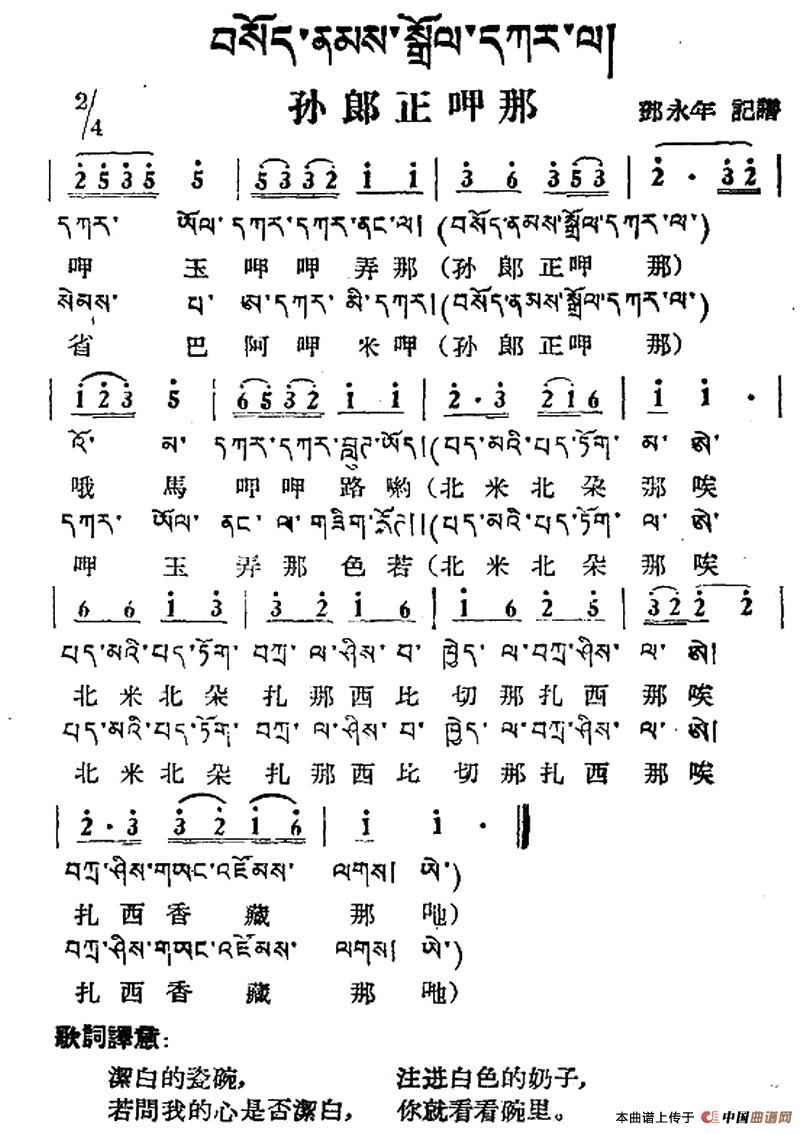 བསོད་ནམས་སྒྲོལ་དཀར་ལ།
2/4 孙郎正呷那 鄧永年 記譜
2 5 3 5 5 | 5 3 3 2 1 1 | 3 6 3 5 3 | 2 · 3 2 |
དཀར་ ཨོལ་ དཀར་དཀར་ནང་ལ། (བསོད་ནམས་སྒྲོལ་དཀར་ལ་)
呷 玉 呷 呷 弄 那 (孙 郎 正 呷 那)
སེམས་ པ་ ཨ་དཀར་ མི་དཀར། (བསོད་ནམས་སྒྲོལ་དཀར་ལ་)
省 巴 阿 呷 米 呷 (孙 郎 正 呷 那)
1 2 3 5 | 6 5 3 2 1 1 | 2 · 3 2 1 6 | 1 1 · |
འོ་ མ་ དཀར་དཀར་བླུཊ་ཡོད། (པད་མའི་པད་ཏོག་ མ་ ཨེ་
哦 馬 呷 呷 路 喲 (北 米 北 朶 那 唉
དཀར་ ཨོལ་ ནང་ ལ་ གཟིག་རོཊ།། (པད་མའི་པད་ཏོག་ ལ་ ཨེ་
呷 玉 弄 那 色 若 (北 米 北 朵 那 唉
6 6 1 3 | 3 2 1 6 | 1 6 2 5 | 3 2 2 2 |
པད་མའི་པད་ཏོག་ བཀྲ་ ལ་ཤིས་ བ་ ཁྱེད་ ལ་བཀྲ་ཤིས་ ལ་ ཨེ།
北 米 北 朵 扎 那 西 比 切 那 扎 西 那 唉
པད་མའི་པད་ཏོག་ བཀྲ་ ལ་ཤིས་ བ་ ཁྱེད་ ལ་བཀྲ་ཤིས་ ལ་ ཨེ།
北 米 北 朵 扎 那 西 比 切 那 扎 西 那 唉
2 · 3 3 2 1 6 | 1 1 · ‖
བཀྲ་ཤིས་གཡང་འཛོམས་ ལགས། ཨེ་)
扎 西 香 藏 那 吔)
བཀྲ་ཤིས་གཡང་འཛོམས་ ལགས། ཨེ་)
扎 西 香 藏 那 吔)
歌詞譯意:
潔白的瓷碗, 注进白色的奶子,
若問我的心是否潔白, 你就看看碗里。
本曲谱上传于 中国曲谱网